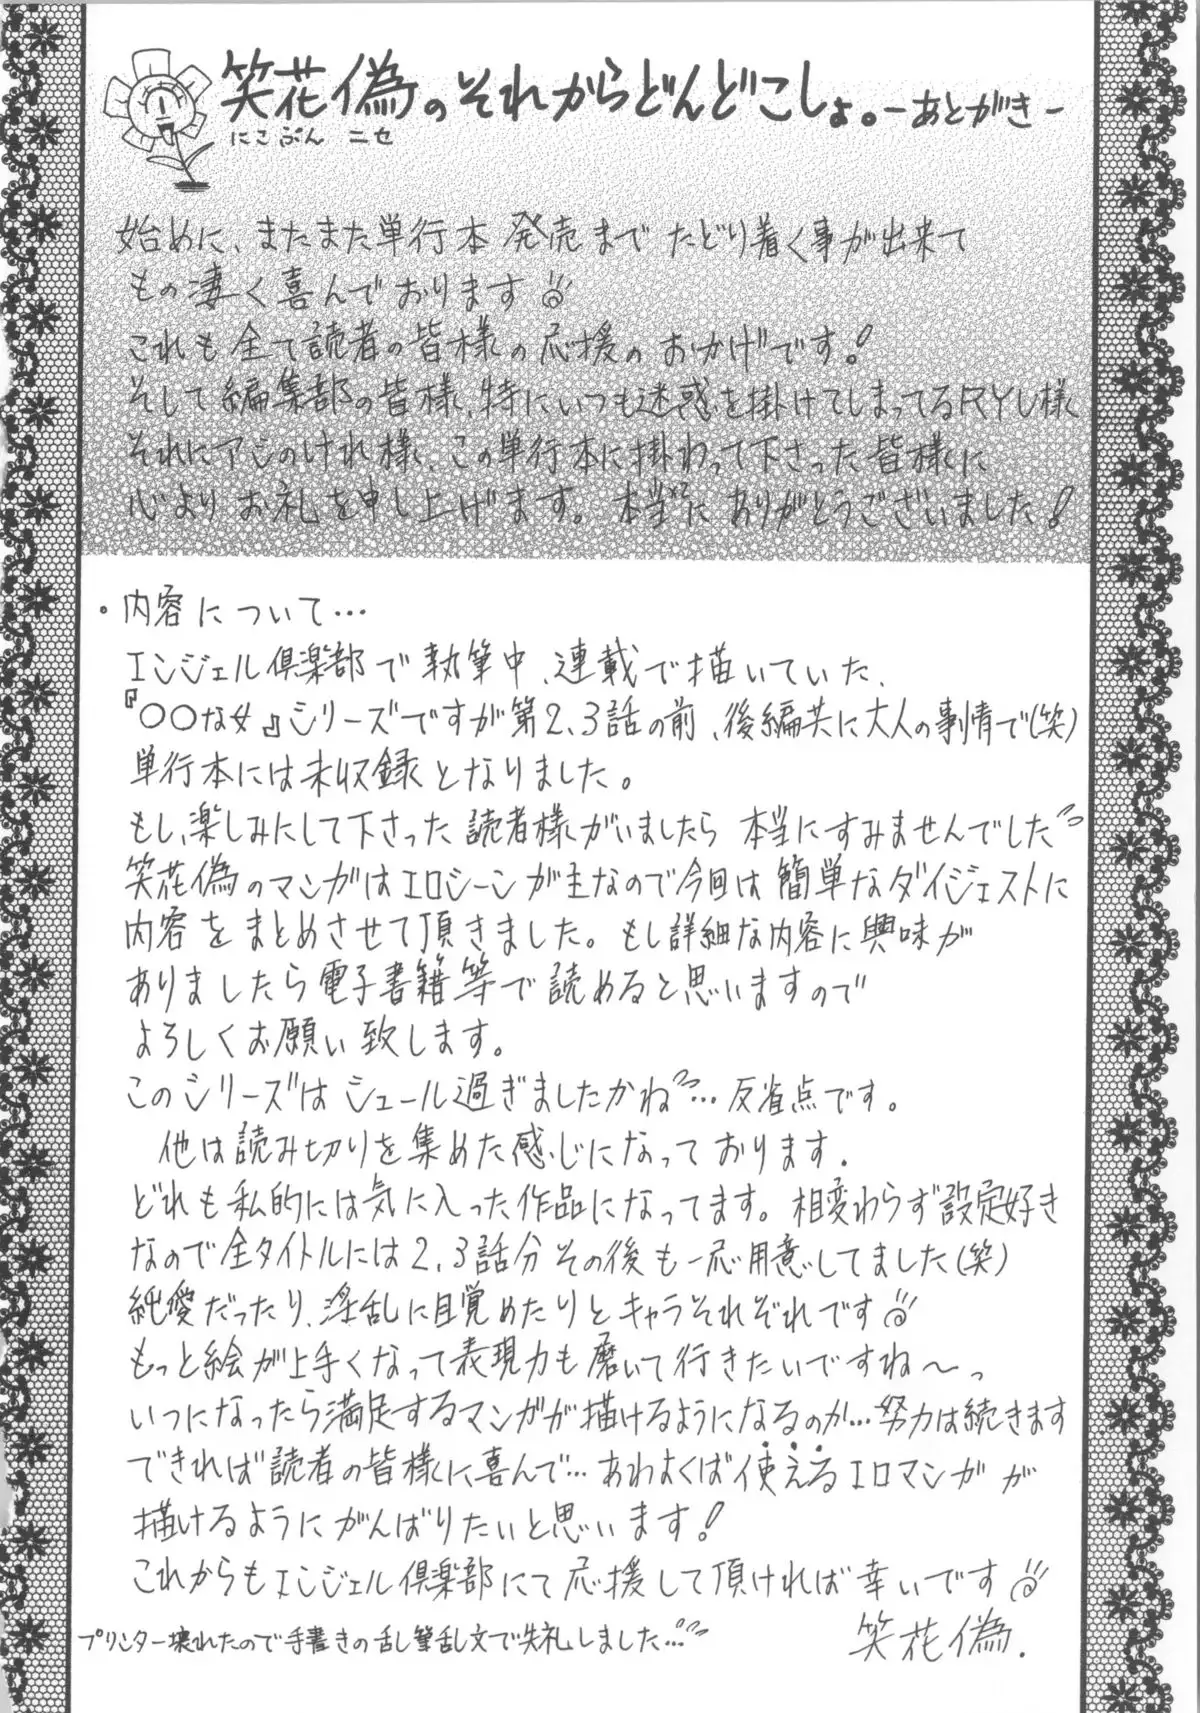 笑花偽のそれからどんどこしょ。−あとがき−
にこぷん ニセ
始めに、またまた単行本発売までたどり着く事が出来て
もの凄く喜んでおります
これも全て読者の皆様の応援のおかげです!
そして編集部の皆様、特にいつも迷惑を掛けてしまってるRYU様
それにアジのけれ様、この単行本に掛わって下さった皆様に
心よりお礼を申し上げます。本当にありがとうございました!
・内容について…
エンジェル倶楽部で執筆中、連載で描いていた、
『○○な女』シリーズですが第2、3話の前、後編共に大人の事情で(笑)
単行本には未収録となりました。
もし、楽しみにして下さった読者様がいましたら本当にすみませんでした
笑花偽のマンガはエロシーンが主なので今回は簡単なダイジェストに
内容をまとめさせて頂きました。もし詳細な内容に興味が
ありましたら電子書籍等で読めると思いますので
よろしくお願い致します。
このシリーズはシュール過ぎましたかね…反省点です。
他は読み切りを集めた感じになっております。
どれも私的には気に入った作品になってます。相変わらず設定好き
なので全タイトルには2、3話分その後も一応用意してました(笑)
純愛だったり、淫乱に目覚めたりとキャラそれぞれです
もっと絵が上手くなって表現力も磨いて行きたいですね〜っ
いつになったら満足するマンガが描けるようになるのか…努力は続きます
できれば読者の皆様に喜んで…あわよくば使えるエロマンガが
描けるようにがんばりたいと思います!
これからもエンジェル倶楽部にて応援して頂ければ幸いです
プリンター壊れたので手書きの乱筆乱文で失礼しました…
笑花偽.